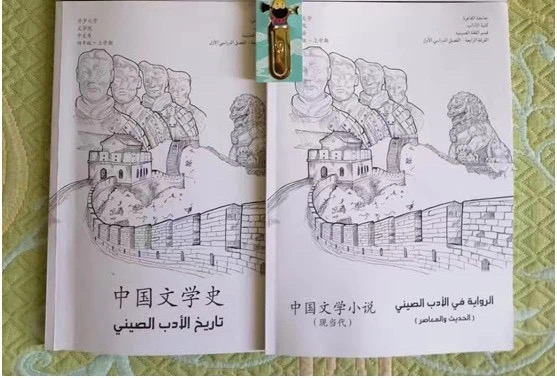 开罗大学
文学院
中文系
四年级-上学期
中国文学史
تاريخ الأدب الصيني
جامعة القاهرة
كلية الآداب
قسم اللغة الصينية
الفرقة الرابعة - الفصل الدراسي الأول
中国文学小说
(现当代)
الرواية في الأدب الصيني
(الحديث والمعاصر)